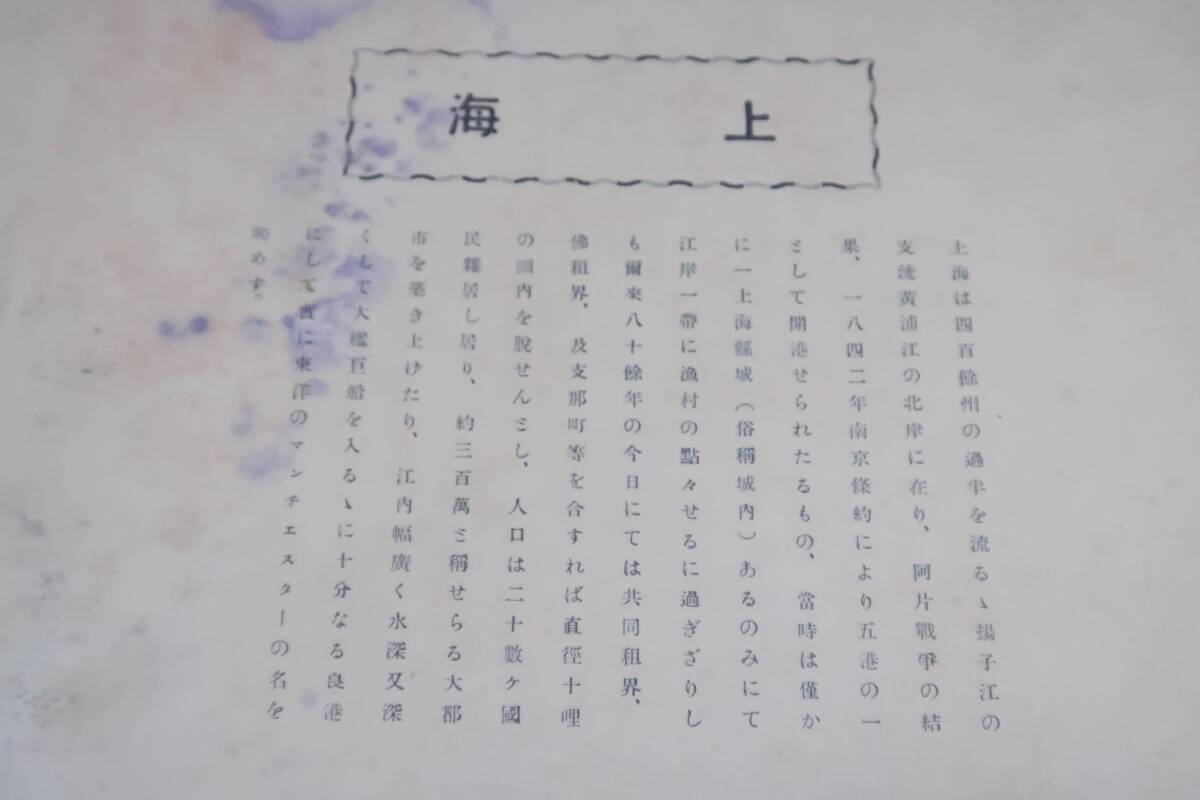 上海
上海は四百餘州の過半を流るゝ揚子江の
支流黃浦江の北岸に在り、阿片戰爭の結
果、一八四二年南京條約により五港の一
として開港せられたるもの、當時は僅か
に一上海縣城（俗稱城內）あるのみにて
江岸一帶に漁村の點々せるに過ぎざりし
も爾來八十餘年の今日にては共同租界、
佛租界、及支那町等を合すれば直徑十哩
の圈內を脫せんとし、人口は二十數ケ國
民雜居し居り、約三百萬と稱せらる大都
市を築き上けたり、江內幅廣く水深又深
くして大艦巨船を入るゝに十分なる良港
にして實に東洋のマンチエスターの名を
恥めす。